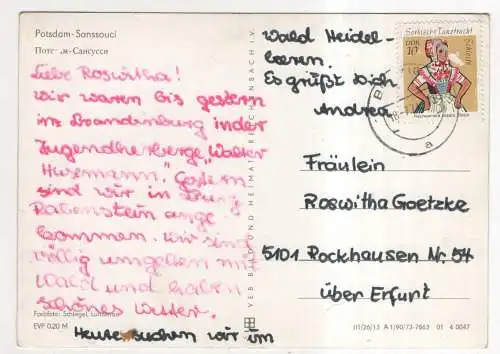 Potsdam-Sanssouci
Потсдам-Сансусси
Liebe Roswitha!
Wir waren bis gestern
in Brandenburg in der
Jugendherberge „Walter
Husemann." Gestern
sind wir in Burg
Rabenstein ange
kommen. Wir sind
völlig umgeben mit
Wald und haben
schönes Wetter.
Heute suchen wir im
Wald Heidel-
beeren.
Es grüßt Dich
Andrea
Sorbische Tanztracht
DDR
10
Schleife
Fräulein
Roswitha Goetzke
5101 Rockhausen Nr. 54
über Erfurt
VEB BILD UND HEIMAT REICHENBACH i. V.
Farbfoto: Schlegel,
EVP 0,20 M
01/26/13 A 1/90/73-7863 01 4 0047